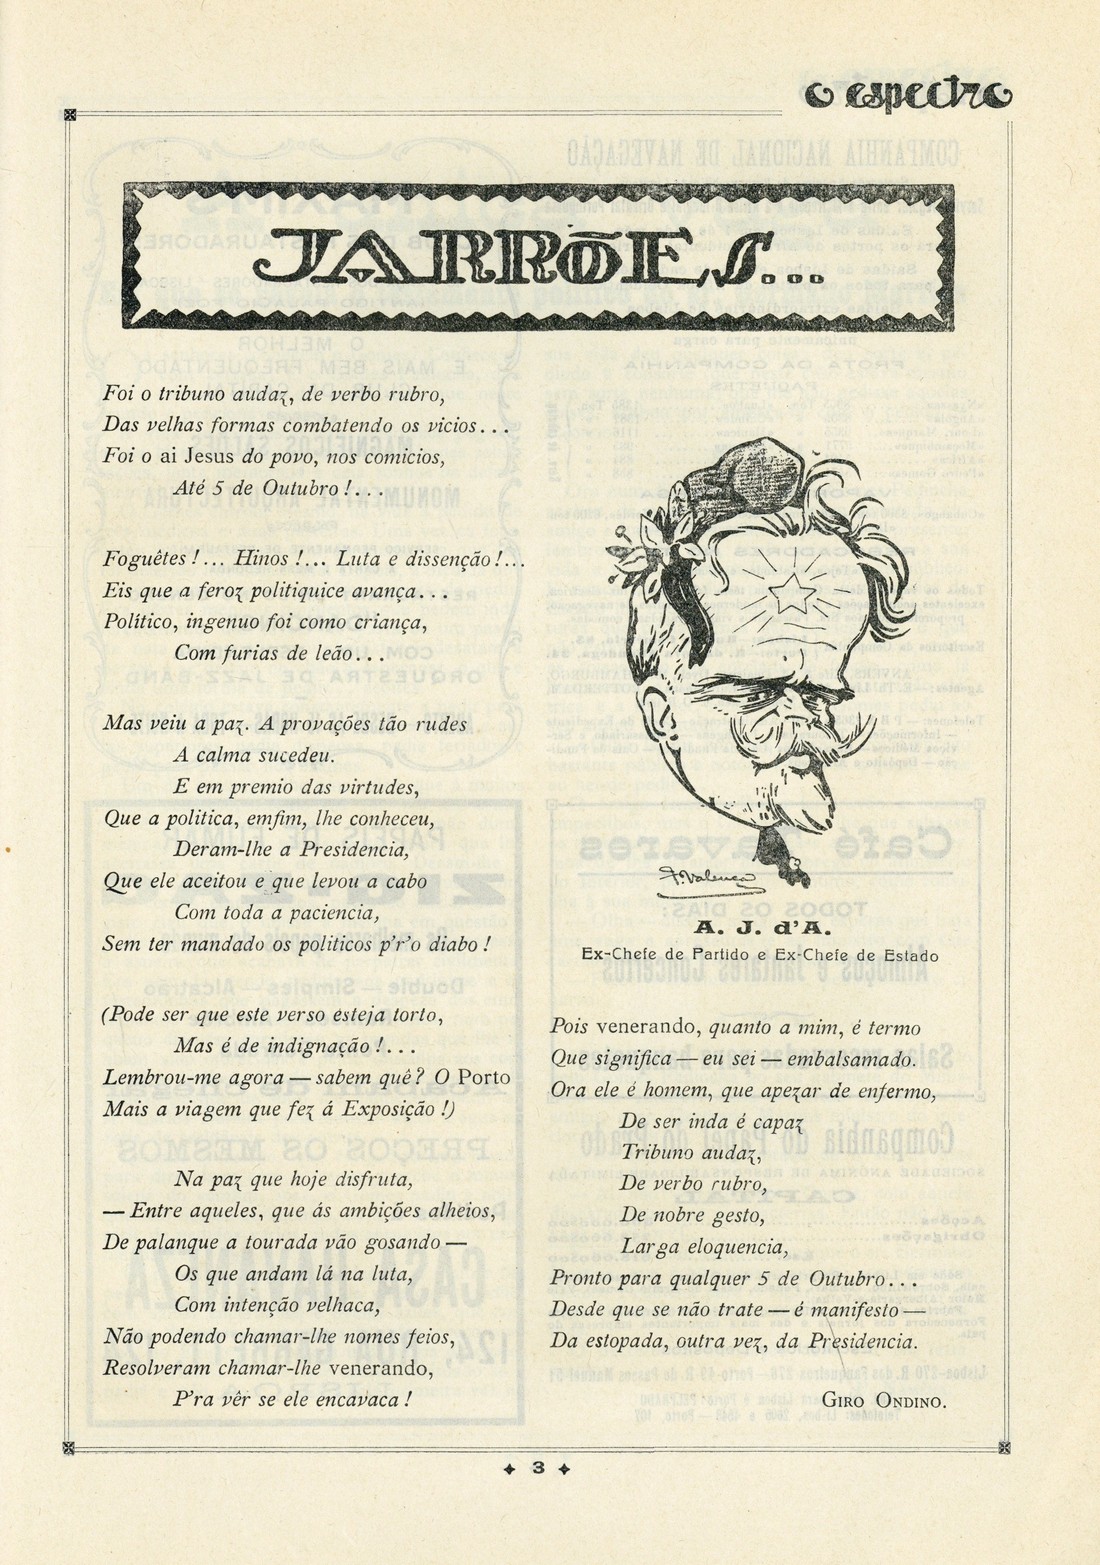 o espectro
JARRÕES...
Foi o tribuno audaz, de verbo rubro,
Das velhas formas combatendo os vicios...
Foi o ai Jesus do povo, nos comicios,
Até 5 de Outubro!...
Foguêtes!... Hinos!... Luta e dissenção!...
Eis que a feroz politiquice avança...
Político, ingenuo foi como criança,
Com furias de leão...
Mas veiu a paz. A provações tão rudes
A calma sucedeu.
E em premio das virtudes,
Que a politica, emfim, lhe conheceu,
Deram-lhe a Presidencia,
Que ele aceitou e que levou a cabo
Com toda a paciencia,
Sem ter mandado os politicos p'r'o diabo!
(Pode ser que este verso esteja torto,
Mas é de indignação!...
Lembrou-me agora — sabem quê? O Porto
Mais a viagem que fez á Exposição!)
Na paz que hoje disfruta,
— Entre aqueles, que ás ambições alheios,
De palanque a tourada vão gosando —
Os que andam lá na luta,
Com intenção velhaca,
Não podendo chamar-lhe nomes feios,
Resolveram chamar-lhe venerando,
P'ra vêr se ele encavaca!
F. Valença
A. J. d'A.
Ex-Chefe de Partido e Ex-Chefe de Estado
Pois venerando, quanto a mim, é termo
Que significa — eu sei — embalsamado.
Ora ele é homem, que apezar de enfermo,
De ser inda é capaz
Tribuno audaz,
De verbo rubro,
De nobre gesto,
Larga eloquencia,
Pronto para qualquer 5 de Outubro...
Desde que se não trate — é manifesto —
Da estopada, outra vez, da Presidencia.
GIRO ONDINO.
3